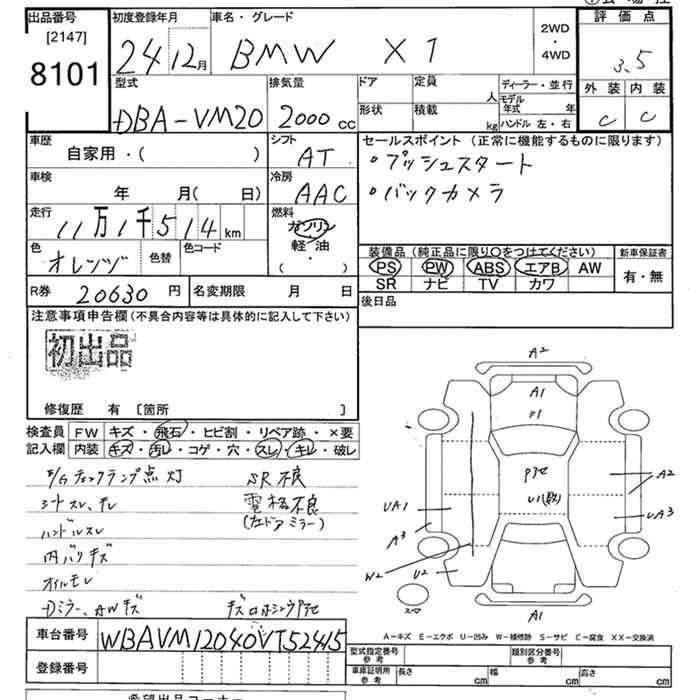 出品番号
[2147]
8101
初度登録年月
24 12月
車名・グレード
BMW X1
2WD
・
4WD
評価点
3.5
外装 内装
C C
型式
DBA-VM20
排気量
2000 cc
ドア
定員
人
形状
積載
kg
ディーラー・並行
モデル年式 年
ハンドル 左・右
車歴
自家用・( )
シフト
AT
セールスポイント (正常に機能するものに限ります)
・プッシュスタート
・バックカメラ
車検
年 月( 日)
冷房
AAC
走行
11万1千514km
燃料
ガソリン
軽油
( ・ )
色
オレンジ
色替
色コード
装備品 (純正品に限り○をつけてください)
PS PW ABS エアB AW
SR ナビ TV カワ
新車保証書
有・無
R券 20630 円
名変期限 月 日
後日品
注意事項申告欄 (不具合内容等は具体的に記入して下さい)
初出品
修復歴 有 〔箇所 〕
検査員
記入欄
FW キズ・飛石・ヒビ割・リペア跡・×要
内装 キズ・汚レ・コゲ・穴・スレ・キレ・破レ
E/Gチェックランプ点灯
SR不良
シートスレ、キレ
電格不良
(左ドアミラー)
ハンドルスレ
内バリキズ
オイルモレ
Dミラー、AWキズ
A2
A1
U1
Pアセ
U1(数)
A2
UA1
UA3
A3
W2
U2
A1
スマ
A-キズ E-エクボ U-凹み W-補修跡 S-サビ C-腐食 XX-交換済
車台番号
WBAVM12040VT52415
登録番号
型式指定番号
参考
類別区分番号
参考
車庫証明用
参考
長さ cm
幅 cm
高さ cm
希望出品コーナー